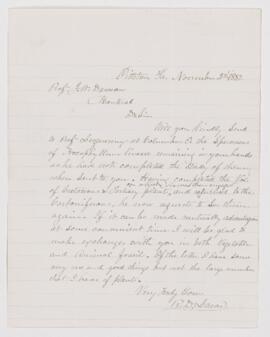 Pittston Pa, November 3d 1883
Prof J. W. Dawson
Montreal
Dr Sir
Will you kindly send
to Prof Lesquereux at Columbus O. the Specimens
of remaining in your hands
as he has not completed the of them
when sent to you. Having completed the
of Cretaceous & Tertiary plants, and to the
Carboniferous, he now wants to see them
again. If it can be made mutually advantageous
at some convenient time I will be glad to
make exchanges with you in both Vegetable
and Animal fossils. Of the latter I have some
very nice and good things but not the large number
that I have of plants.
Very truly Yours
R. D. Lacoe